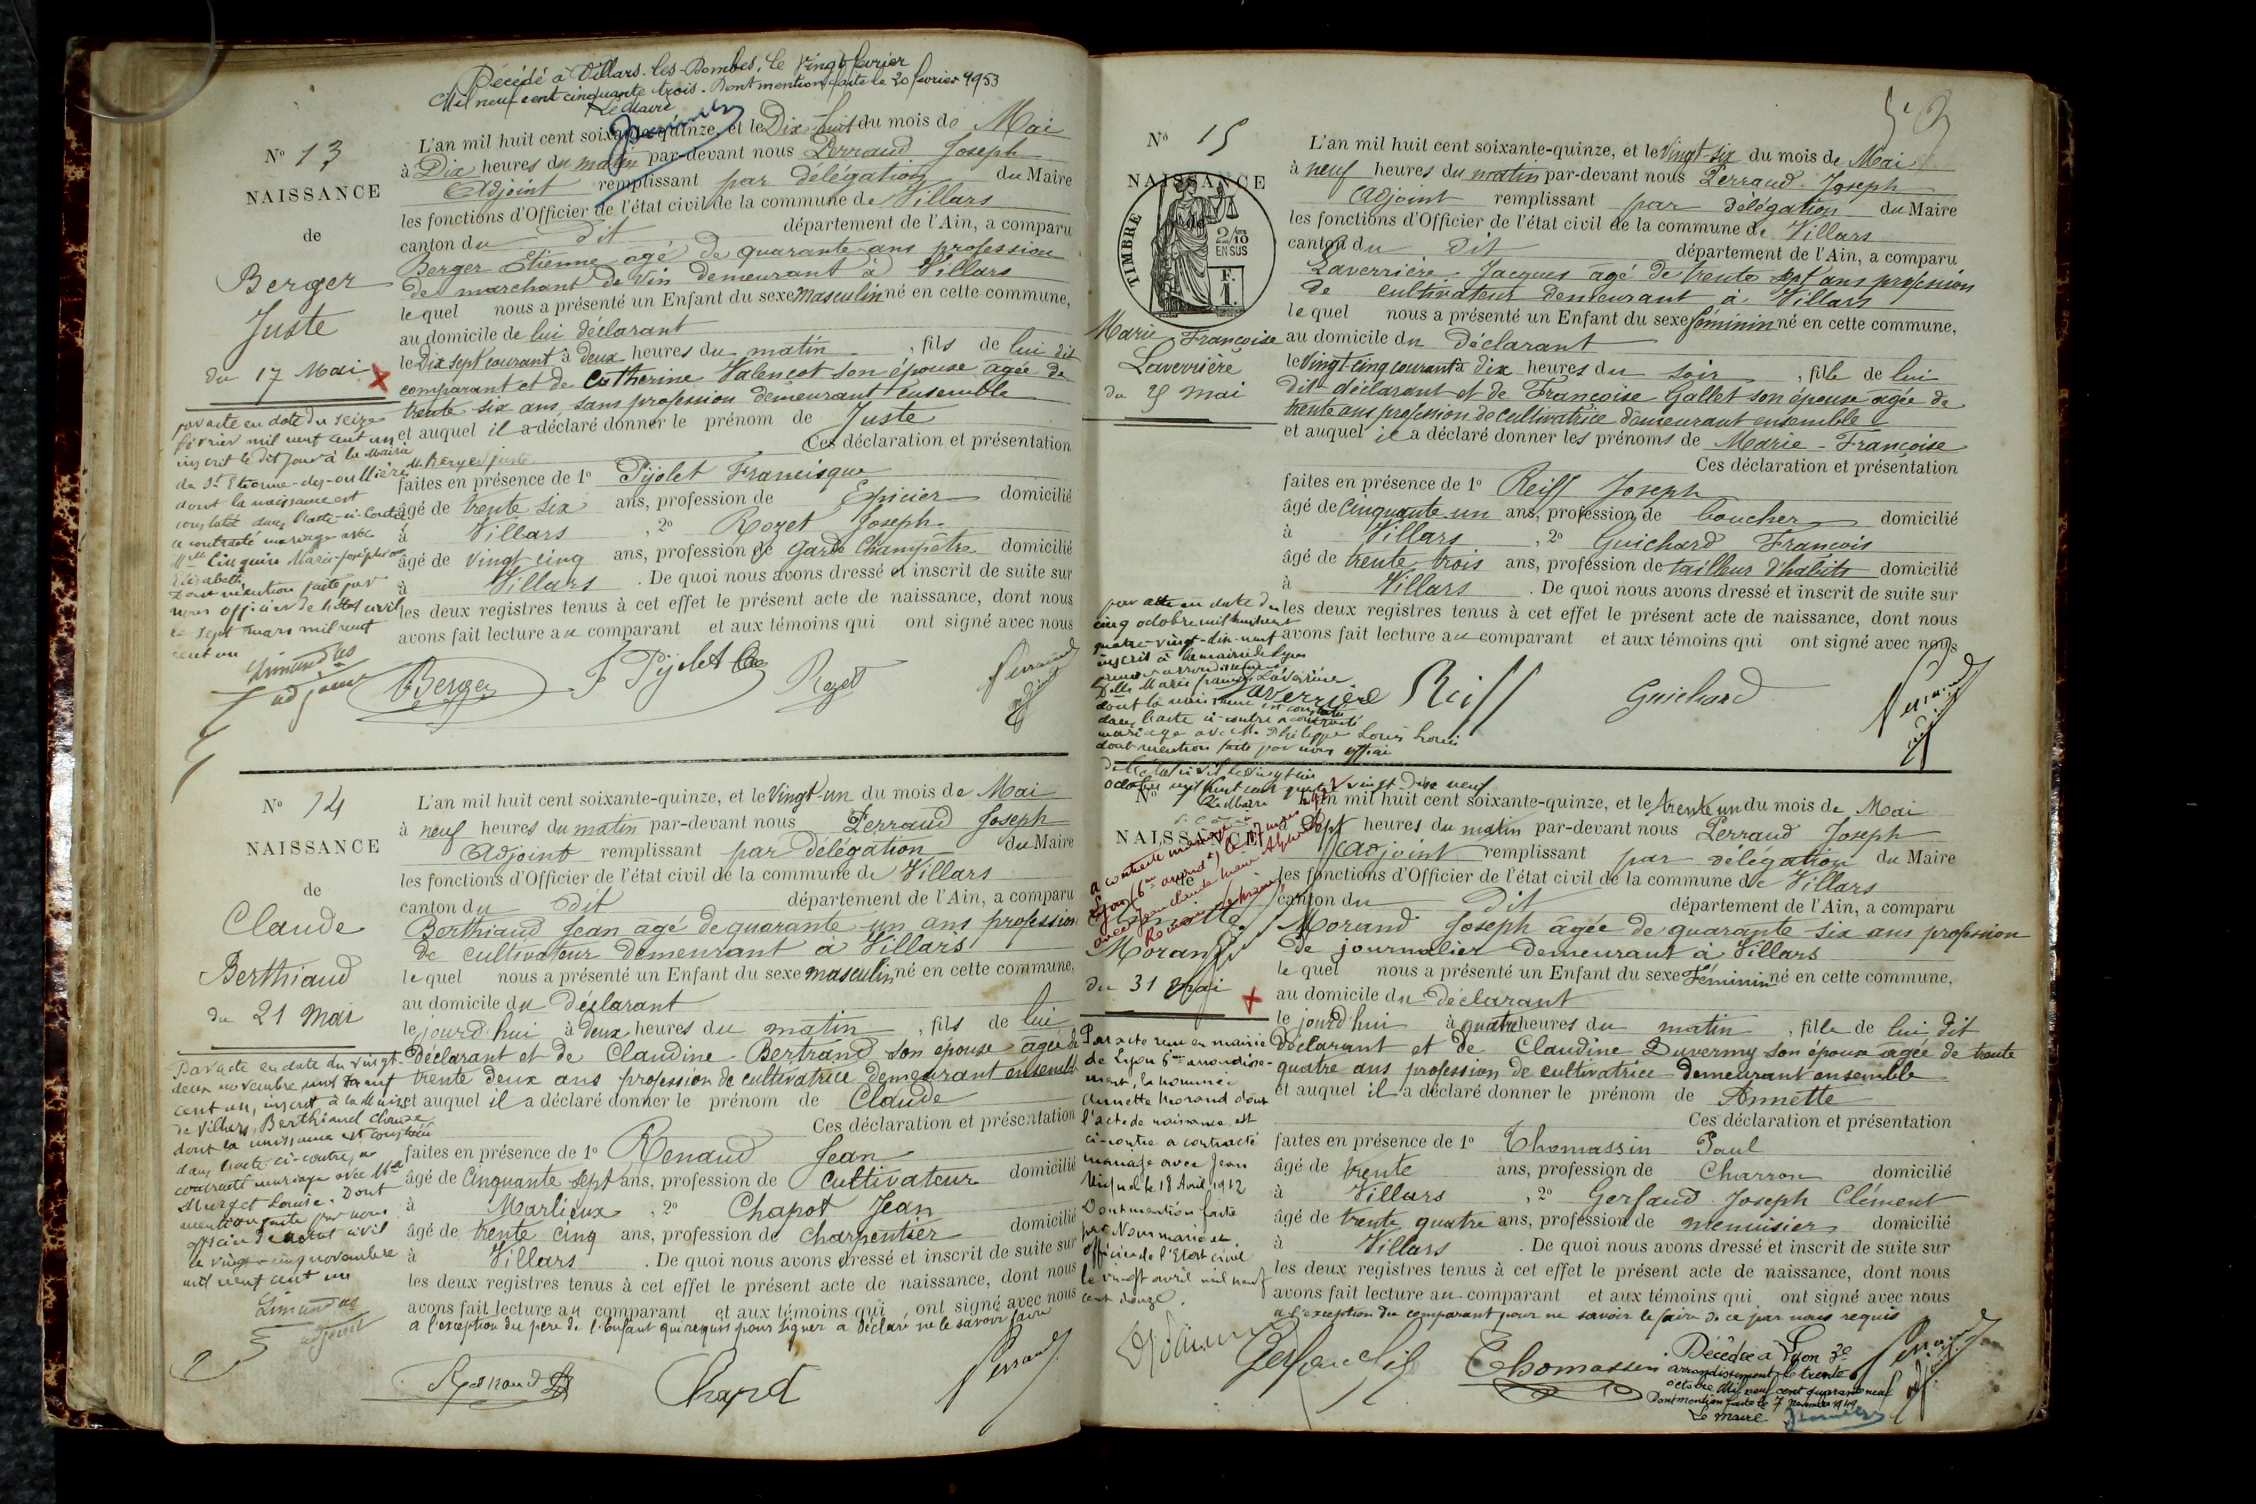 Décédé à Villars-les-Dombes, le vingt février
Mil neuf cent cinquante trois. Dont mention faite le 20 février 1953
Le Maire
N° 13
NAISSANCE
de
Berger
Juste
du 17 Mai
L'an mil huit cent soixante-quinze, et le Dix-huit du mois de Mai
à Dix heures du matin par-devant nous Perraud Joseph
Adjoint remplissant par délégation du Maire
les fonctions d'Officier de l'état civil de la commune de Villars
canton du dit département de l'Ain, a comparu
Berger Etienne agé de quarante ans profession
de marchant de vin demeurant à Villars
le quel nous a présenté un Enfant du sexe masculin né en cette commune,
au domicile de lui déclarant
le Dix sept courant à deux heures du matin, fils de lui dit
comparant et de Catherine Valencot son épouse agée de
trente six ans, sans profession demeurant ensemble
et auquel il a déclaré donner le prénom de Juste
Ces déclaration et présentation
faites en présence de 1° Pijolet Francisque
âgé de trente six ans, profession de Epicier domicilié
à Villars, 2° Rozet Joseph
âgé de vingt cinq ans, profession de Garde Champêtre domicilié
à Villars. De quoi nous avons dressé et inscrit de suite sur
les deux registres tenus à cet effet le présent acte de naissance, dont nous
avons fait lecture au comparant et aux témoins qui ont signé avec nous
par acte en date du seize
février mil neuf cent un
inscrit le dit jour à la Mairie
de St Etienne-des-oullières Mr Berger Juste
dont la naissance est
constatée dans l'acte ci-contre
a contracté mariage avec
Mlle Marie-Joséphine
Elisabeth
Dont mention faite par
nous officier de l'état civil
le sept mars mil neuf
cent un
adjoint
Berger F Pijolet Rozet Perraud
N° 14
NAISSANCE
de
Claude
Berthiaud
du 21 Mai
L'an mil huit cent soixante-quinze, et le Vingt-un du mois de Mai
à neuf heures du matin par-devant nous Perraud Joseph
Adjoint remplissant par délégation du Maire
les fonctions d'Officier de l'état civil de la commune de Villars
canton du dit département de l'Ain, a comparu
Berthiaud Jean agé de quarante un ans profession
de cultivateur demeurant à Villars
le quel nous a présenté un Enfant du sexe masculin né en cette commune,
au domicile du déclarant
le jourd'hui à Deux heures du matin, fils de lui
déclarant et de Claudine Bertrand son épouse agée de
trente deux ans profession de cultivatrice demeurant ensemble
et auquel il a déclaré donner le prénom de Claude
Ces déclaration et présentation
faites en présence de 1° Renaud Jean
âgé de Cinquante sept ans, profession de Cultivateur domicilié
à Marlieux, 2° Chapot Jean
âgé de trente cinq ans, profession de Charpentier domicilié
à Villars. De quoi nous avons dressé et inscrit de suite sur
les deux registres tenus à cet effet le présent acte de naissance, dont nous
avons fait lecture au comparant et aux témoins qui ont signé avec nous
a l'exception du père de l'Enfant qui requis pour signer a déclaré ne le savoir faire
Par acte en date du vingt-
deux novembre mil neuf
cent un, inscrit à la Mairie
de Villars, Berthiaud Claude
dont la naissance est constatée
dans l'acte ci-contre, a
contracté mariage avec Mlle
Louise. Dont
mention faite par nous
officier de l'état civil
le vingt-cinq novembre
mil neuf cent un
adjoint
Renaud Chapot Perraud
N° 15
NAISSANCE
TIMBRE
2/10
EN SUS
F.
1.
Marie Françoise
Laverrière
du 25 Mai
L'an mil huit cent soixante-quinze, et le Vingt-six du mois de Mai
à neuf heures du matin par-devant nous Perraud Joseph
Adjoint remplissant par délégation du Maire
les fonctions d'Officier de l'état civil de la commune de Villars
canton du dit département de l'Ain, a comparu
Laverrière Jacques agé de trente sept ans profession
de cultivateur demeurant à Villars
le quel nous a présenté un Enfant du sexe féminin né en cette commune,
au domicile du Déclarant
le Vingt-cinq courant à dix heures du soir, fille de lui
dit déclarant et de Françoise Gallet son épouse agée de
trente ans profession de cultivatrice demeurant ensemble
et auquel il a déclaré donner les prénoms de Marie-Françoise
Ces déclaration et présentation
faites en présence de 1° Reiff Joseph
âgé de Cinquante un ans, profession de boucher domicilié
à Villars, 2° Guichard François
âgé de trente trois ans, profession de tailleur d'habits domicilié
à Villars. De quoi nous avons dressé et inscrit de suite sur
les deux registres tenus à cet effet le présent acte de naissance, dont nous
avons fait lecture au comparant et aux témoins qui ont signé avec nous
par acte en date du
cinq octobre mil huit cent
quatre-vingt-dix-neuf
inscrit à la mairie de Lyon
arrondissement
Dlle Marie Françoise Laverrière
dont la naissance est constatée
dans l'acte ci-contre a contracté
mariage avec Mr Philippe Louis
dont mention faite par nous officier
de l'état civil le vingt
octobre mil huit cent quatre vingt dix neuf
Le Maire
Laverrière Reiff Guichard Perraud
N°
NAISSANCE
de
Annette
Morand
du 31 Mai
L'an mil huit cent soixante-quinze, et le trente un du mois de Mai
à Sept heures du matin par-devant nous Perraud Joseph
Adjoint remplissant par délégation du Maire
les fonctions d'Officier de l'état civil de la commune de Villars
canton du dit département de l'Ain, a comparu
Morand Joseph agée de quarante six ans profession
de journalier demeurant à Villars
le quel nous a présenté un Enfant du sexe Féminin né en cette commune,
au domicile du déclarant
le jourd'hui à quatre heures du matin, fille de lui dit
déclarant et de Claudine Duverny son épouse agée de trente
quatre ans profession de cultivatrice demeurant ensemble
et auquel il a déclaré donner le prénom de Annette
Ces déclaration et présentation
faites en présence de 1° Thomassin Paul
âgé de trente ans, profession de Charron domicilié
à Villars, 2° Gerfaud Joseph Clément
âgé de trente quatre ans, profession de menuisier domicilié
à Villars. De quoi nous avons dressé et inscrit de suite sur
les deux registres tenus à cet effet le présent acte de naissance, dont nous
avons fait lecture au comparant et aux témoins qui ont signé avec nous
a l'exception du comparant pour ne savoir le faire de ce par nous requis
a contracté mariage
Lyon
Par acte reçu en mairie
de Lyon 6me arrondisse-
ment, la nommée
Annette Morand dont
l'acte de naissance est
ci-contre a contracté
mariage avec Jean
le 18 Avril 1912
Dont mention faite
par Nous maire et
officier de l'Etat civil
le vingt avril mil neuf
cent douze.
Gerfaud Thomassin Perraud
Décédée à Lyon 3e
arrondissement, le trente
octobre Mil neuf cent quarante neuf
Dont mention faite le 7 novembre 1949
Le Maire